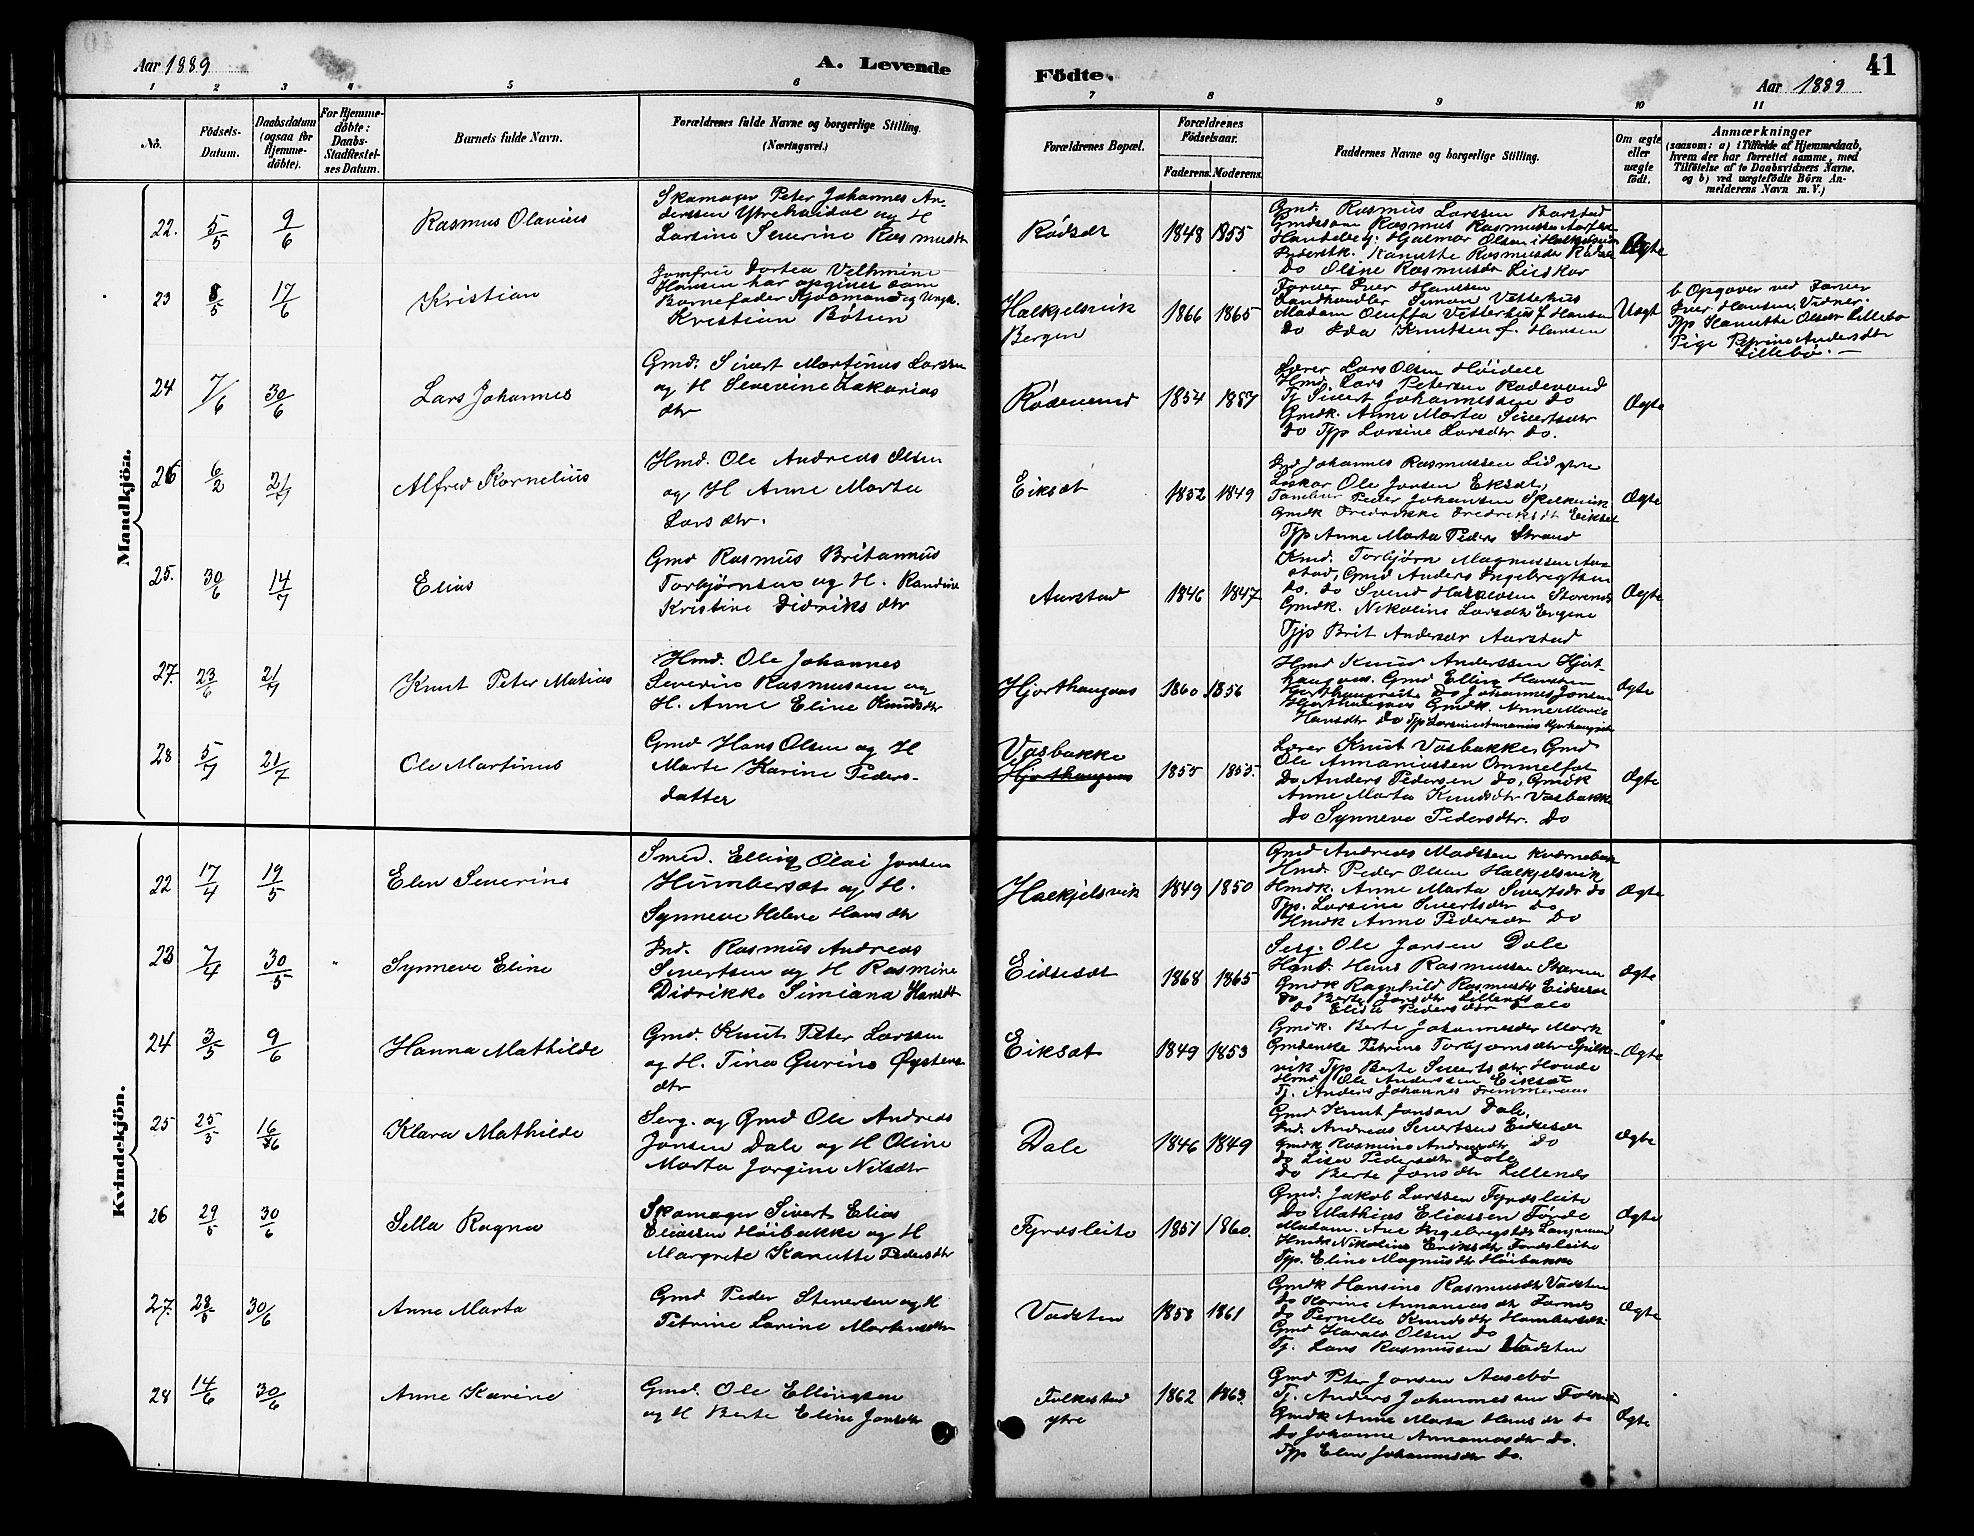 Aar 1889
A. Levende
Födte.
Aar 1889
41
1 2 3 4 5 6 7 8 9 10 11
No.
Födsels-Datum.
Daabsdatum (ogsaa for Hjemme-döbte).
For Hjemme-döbte: Daabs-Stadfæstel-ses Datum.
Barnets fulde Navn.
Forældrenes fulde Navne og borgerlige Stilling.
(Næringsvei.)
Forældrenes Bopæl.
Forældrenes Födselsaar.
Faderens. Moderens.
Faddernes Navne og borgerlige Stilling.
Om ægte eller uægte födt.
Anmærkninger
(saasom: a) i Tilfælde af Hjemmedaab,
hvem der har forrettet samme, med
Tilföielse af to Daabsvidners Navne.
og b) ved uægtefödte Börn An-
melderens Navn m. V.)
Mandkjön.
22. 5/5 9/6 Rasmus Olavius
Skomager Peter Johannes An-
derssen Ytrehovdal og H
Larsine Severine Rasmusdtr
1848 1855
Gmd. Rasmus Larssen Barstad
Gmdssøn Rasmus Rasmussen
Hjalmar Olsen
Kanutte Rasmusdtr
Do Oline Rasmusdtr Lieskar
Ægte
23 8/5 17/6 Kristian
Jomfru Dortea Vilhmine
Hansen har opgivet som
Barnefader Sjømand og Ungk.
Kristian Bøtun
Halkjelsvik
Bergen
1866 1865
Iver Hanssen
Landhandler Simon Vatterhus
Madam Oluffa Vatterhus f Hansen
Do Ida Knutsen f. Hansen
Uægt
b Opgaver ved Farver
Iver Hansen, Vidner:
Typ Kanutte Olsdtr Lillebø
Pige Petrine Andersdtr
Lillebø. —
24 7/6 30/6 Lars Johannes
Gmd. Sivert Martinus Larssen
og H Severine Zakarias
dtr
1854 1857
Lærer Lars Olsen Høidal
Hmd. Lars Petersen Rødevand
Tj Sivert Johannessen do
Gmdk. Anne Marta Sivertsdtr
Do Typ Larsine Larsdtr Do.
Ægte
26 6/2 21/7 Alfred Kornelius
Hmd. Ole Andreas Olsen
og H Anne Marta
Larsdtr.
Eiksæt
1852 1849
Johannes Rasmussen Lid ytre
Ole Jonsen Eksæt,
Tambur Peder Johansen
Gmdk Fredrikke Fredriksdt Eikset
Typ Anne Marta Peders Strand
Ægte
25. 30/6 14/7 Elias
Gmd Rasmus Britannus
Torbjørnsen og H. Randine
Kristine Didriksdtr
Aarstad
1846 1847
Kmd. Torbjørn Magnussen Aar-
stad, Gmd Anders Ingebregtsen
do. do Svend
Gmdk. Nikoline Larsdtr
Typ Brit Andersdtr Aarstad
Ægte
27. 23/6 21/7 Knut Peter Matias
Hmd. Ole Johannes
Severin Rasmussen og
H. Anne Eline Knudsdtr
Hjorthaugnæs
1860. 1856
Hmd Knud Anderssen Hjort-
haugnæs. Gmd Elling Hanssen
Hjorthaugnæs Do Johannes Jonsen
Hjorthaugnæs Gmdk. Anne Marie
Hansdtr Do
Ægte
28 5/7 21/7 Ole Martinus
Gmd Hans Olsen og H
Marte Karine Peders-
datter
Vasbakke
Hjorthaugnæs
1855 1855.
Lærer Knut Vasbakke, Gmd
Ole Annaniassen Ommelfot
Do Anders Pedersen do, Gmdk
Anne Marta Knudsdtr Vasbakke
Do Synneve Pedersdtr. Do
Ægte
Kvindekjön.
22 17/4 19/5 Elen Severine
Smed. Elling Olai Jonsen
Humbersæt og H.
Synneve Helene Hansdtr
Halkjelsvik
1849 1850
Gmd Andreas Madssen
Hmd. Peder Olsen Halkjelsvik
Hmdk. Anne Marta Sivertsdr do
Typ. Larsine Sivertsdtr do
Hmdk Anne Pedersdtr Do
Ægte
23 7/4 30/5 Synneve Eline
Ind. Rasmus Andreas
Sivertsen og H Rasmine
Didrikke Simiana Hansdt
Eidsesæt
1868 1865
Serg. Ole Jonsen Dale
Hmd. Hans Rasmussen
Gmdk Ragnhild Rasmusdtr
Do Berte Jonsdtr Lillenes
Do Elise Pedersdtr Dale
Ægte
24 3/5 9/6 Hanna Mathilde
Gmd. Knut Peter Larssen
og H. Tina Gurine Øystens
dtr
Eiksæt
1849 1853
Gmdk. Berte Johannesdtr Mork
Gmdenke Petrine Torbjørnsdtr Spilk-
vik Typ Berte Sivertsdtr Hovde
Hmd Ole Anderssen Eiksæt
Tj. Anders Johannes
Ægte
25 25/5 16/6 Klara Mathilde
Serg. og Gmd Ole Andreas
Jonsen Dale og H Oline
Marta Jorgine Nilsdtr
Dale
1846 1849
Gmd Knut Jonsen Dale.
Ind. Andreas Sivertsen
Gmdk Rasmine Andreasdtr do
do Lisa Pedersdtr Dale
Do Berte Jonsdtr Lillenes
Ægte
26 29/5 30/6 Sella Ragna
Skomager Sivert Elias
Eliassen Høibakke og H
Margrete Kanutte Pedersdtr
Fyrdsleite
1851 1860.
Gmd. Jakob Larssen Fyrdsleite
Do Mathias Eliassen Førde
Madam. Ane Ingebregtsdtr
Hmdk Nikoline Eriksdtr
Typ. Eline Magnusdtr Høibakke
Ægte
27. 28/5 30/6 Anne Marta
Gmd Peder Stenersen og H
Petrine Larine Mortensdtr
Vadsten
1853 1861
Gmdk Hansine Rasmusdtr Vadsten
Do Karine Annaniasdtr
Do Pernelle Knudsdtr Humbersæt
Gmd Harald Olsen do
Tj. Lars Rasmussen Vadsten
Ægte
28 14/6 30/6 Anne Karine
Gmd. Ole Ellingsen
og H Berte Eline Jonsdtr
Folkestad
ytre
1862 1863.
Gmd Peter Jonsen Aasebø
Tj. Anders Johannessen
Gmdk Anne Marta Hansdtr do
Do Johanne Annaniasdtr do.
Typ Elen Johannesdtr do.
Ægte